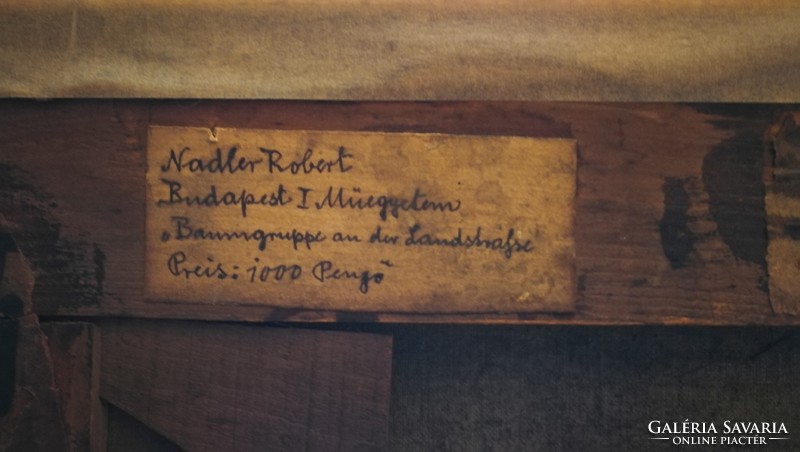 Nadler Robert
Budapest I Müegyetem
„Baumgruppe an der Landstraſse"
Preis: 1000 Pengö
GALÉRIA SAVARIA
ONLINE PIACTÉR